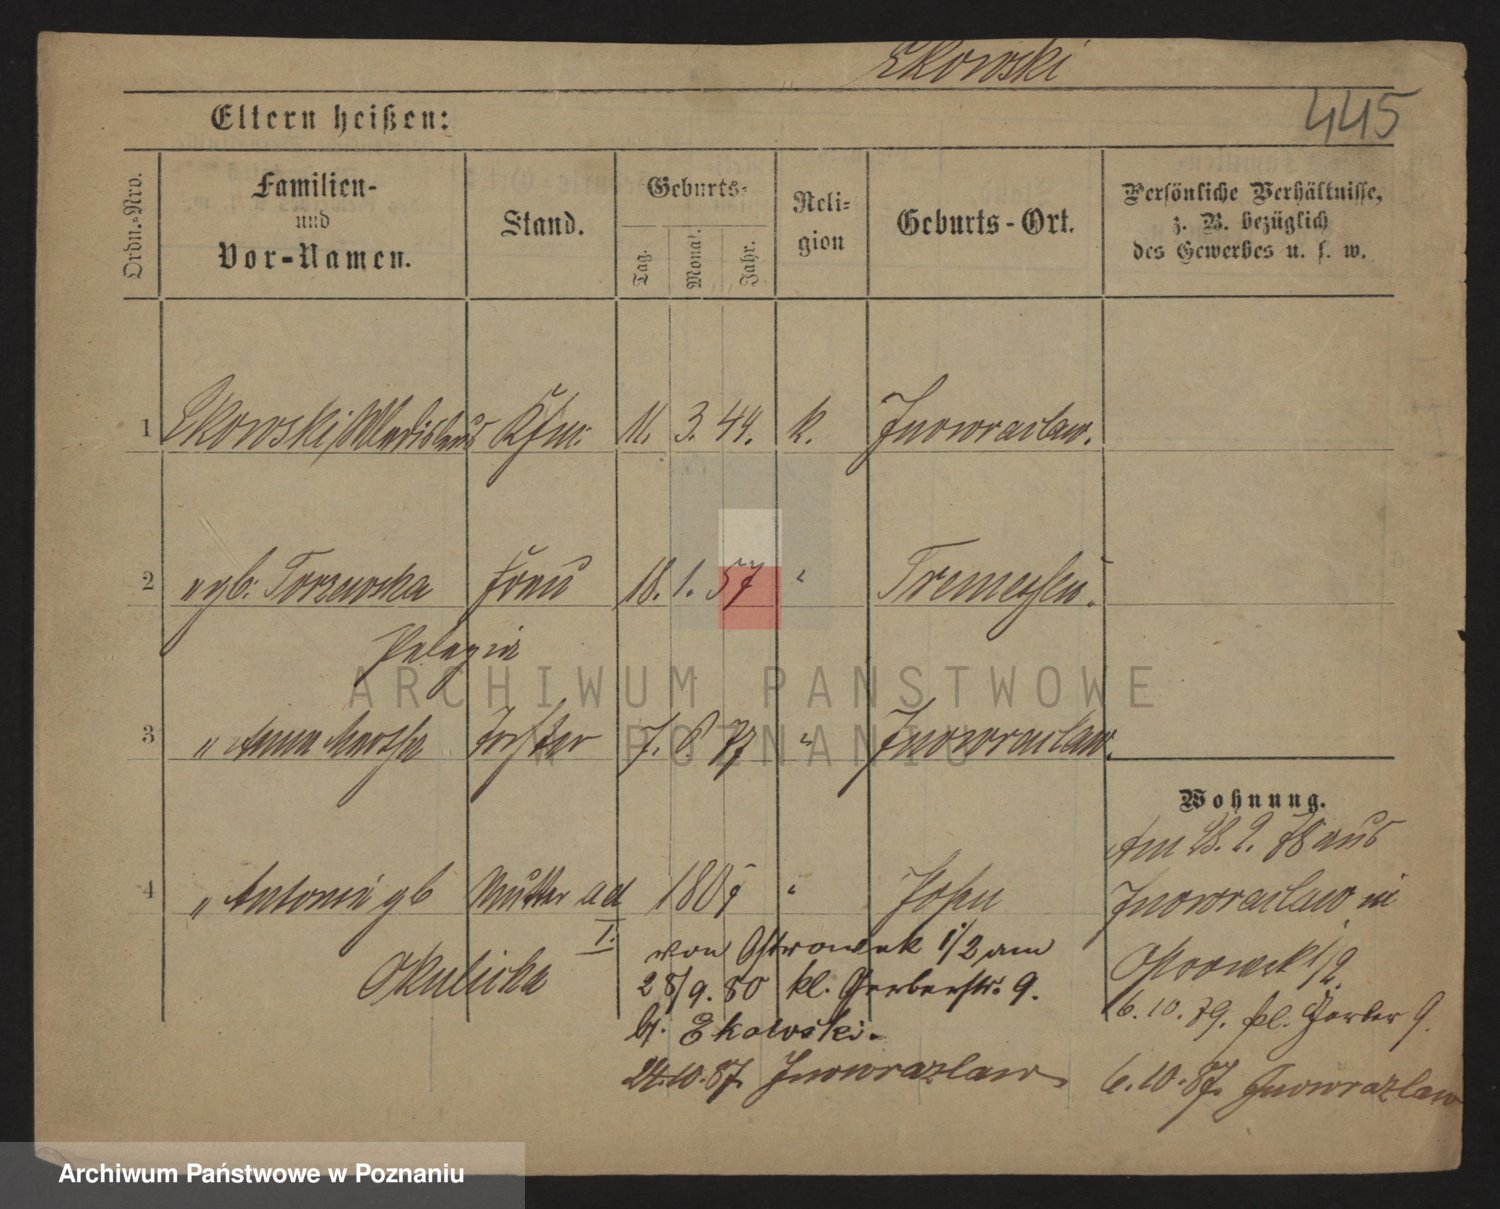 Ekowski
445
Eltern heißen:
Ordn.-Nro.
Familien-
und
Vor-Namen.
Stand.
Geburts-
Tag.
Monat.
Jahr.
Reli-
gion
Geburts-Ort.
Persönliche Verhältnisse,
z. B. bezüglich
des Gewerbes u. s. w.
1 Ekowski Wladislaus Kfm. 11. 3. 44. k. Inowraclaw.
2 " gb. Torzewska Frau 18. 1. 57 " Tremeßen.
Pelagia
3 " Anna Martha Tochter 7. 8. 77 " Inowraclaw.
Wohnung.
Am 28. 2. 78 aus
4 " Antonie gb Mutter ad "
1.
Okulicka
Inowraclaw in
von Ostrowek 1/2 am
28/9. 80 kl. Gerberstr. 9.
bj. Ekowski.
24.10.87. Inowrazlaw
Ostrowek 1/2
6. 10. 79. kl. Gerber 9.
6. 10. 87. Inowrazlaw
ARCHIWUM PAŃSTWOWE
W POZNANIU
Archiwum Państwowe w Poznaniu